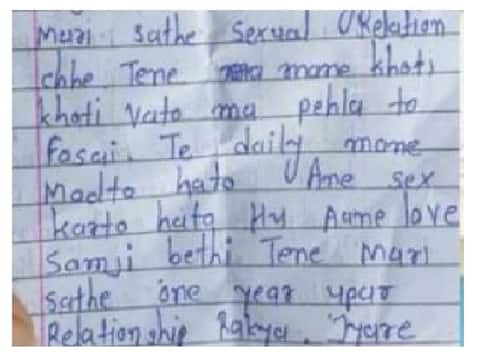 Muri sathe sexual Relation
chhe Tene mame khoti
khoti vato ma pehla to
fasai. Te daily mame
Madto hato Ame sex
karto hato Hu Aame love
Samji bethi Tene Mari
sathe one year upar
Relationship Rakya. Jyare